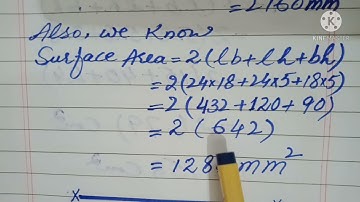 = 2160mm
KINEMASTER
Also, we know
Surface Area = 2(lb+lh+bh)
= 2(24×18+24×5+18×5)
= 2(432+120+90)
= 2(642)
= 128 mm²